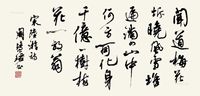 聞道梅花
坼曉風雪堆
遍滿四山中
何方可化身
千億一樹梅
花一放翁
宋陸游詩